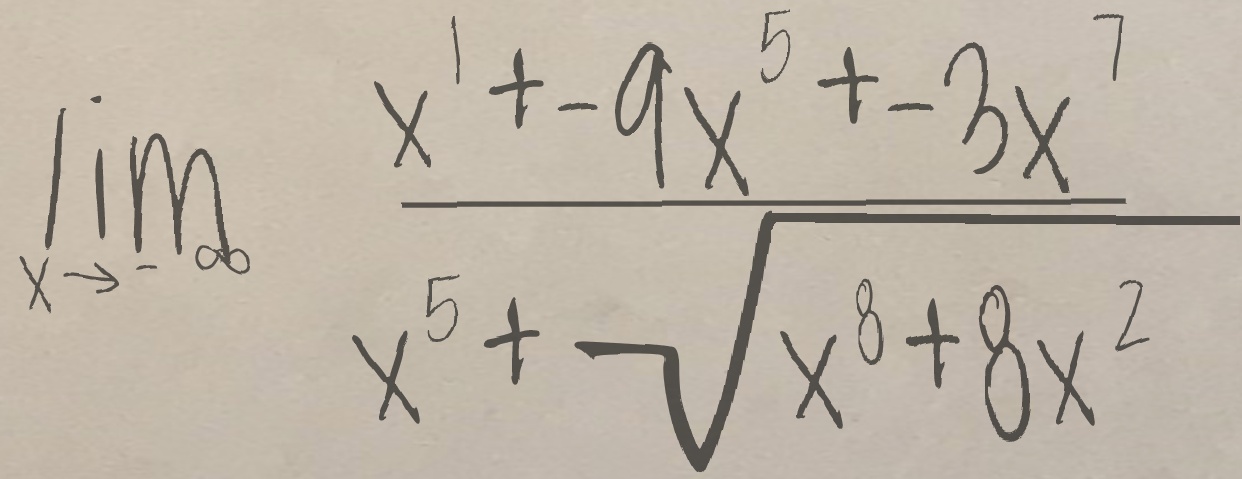 \lim_{x \to -\infty} \frac{x^1 + -9x^5 + -3x^7}{x^5 + \sqrt{x^8 + 8x^2}}